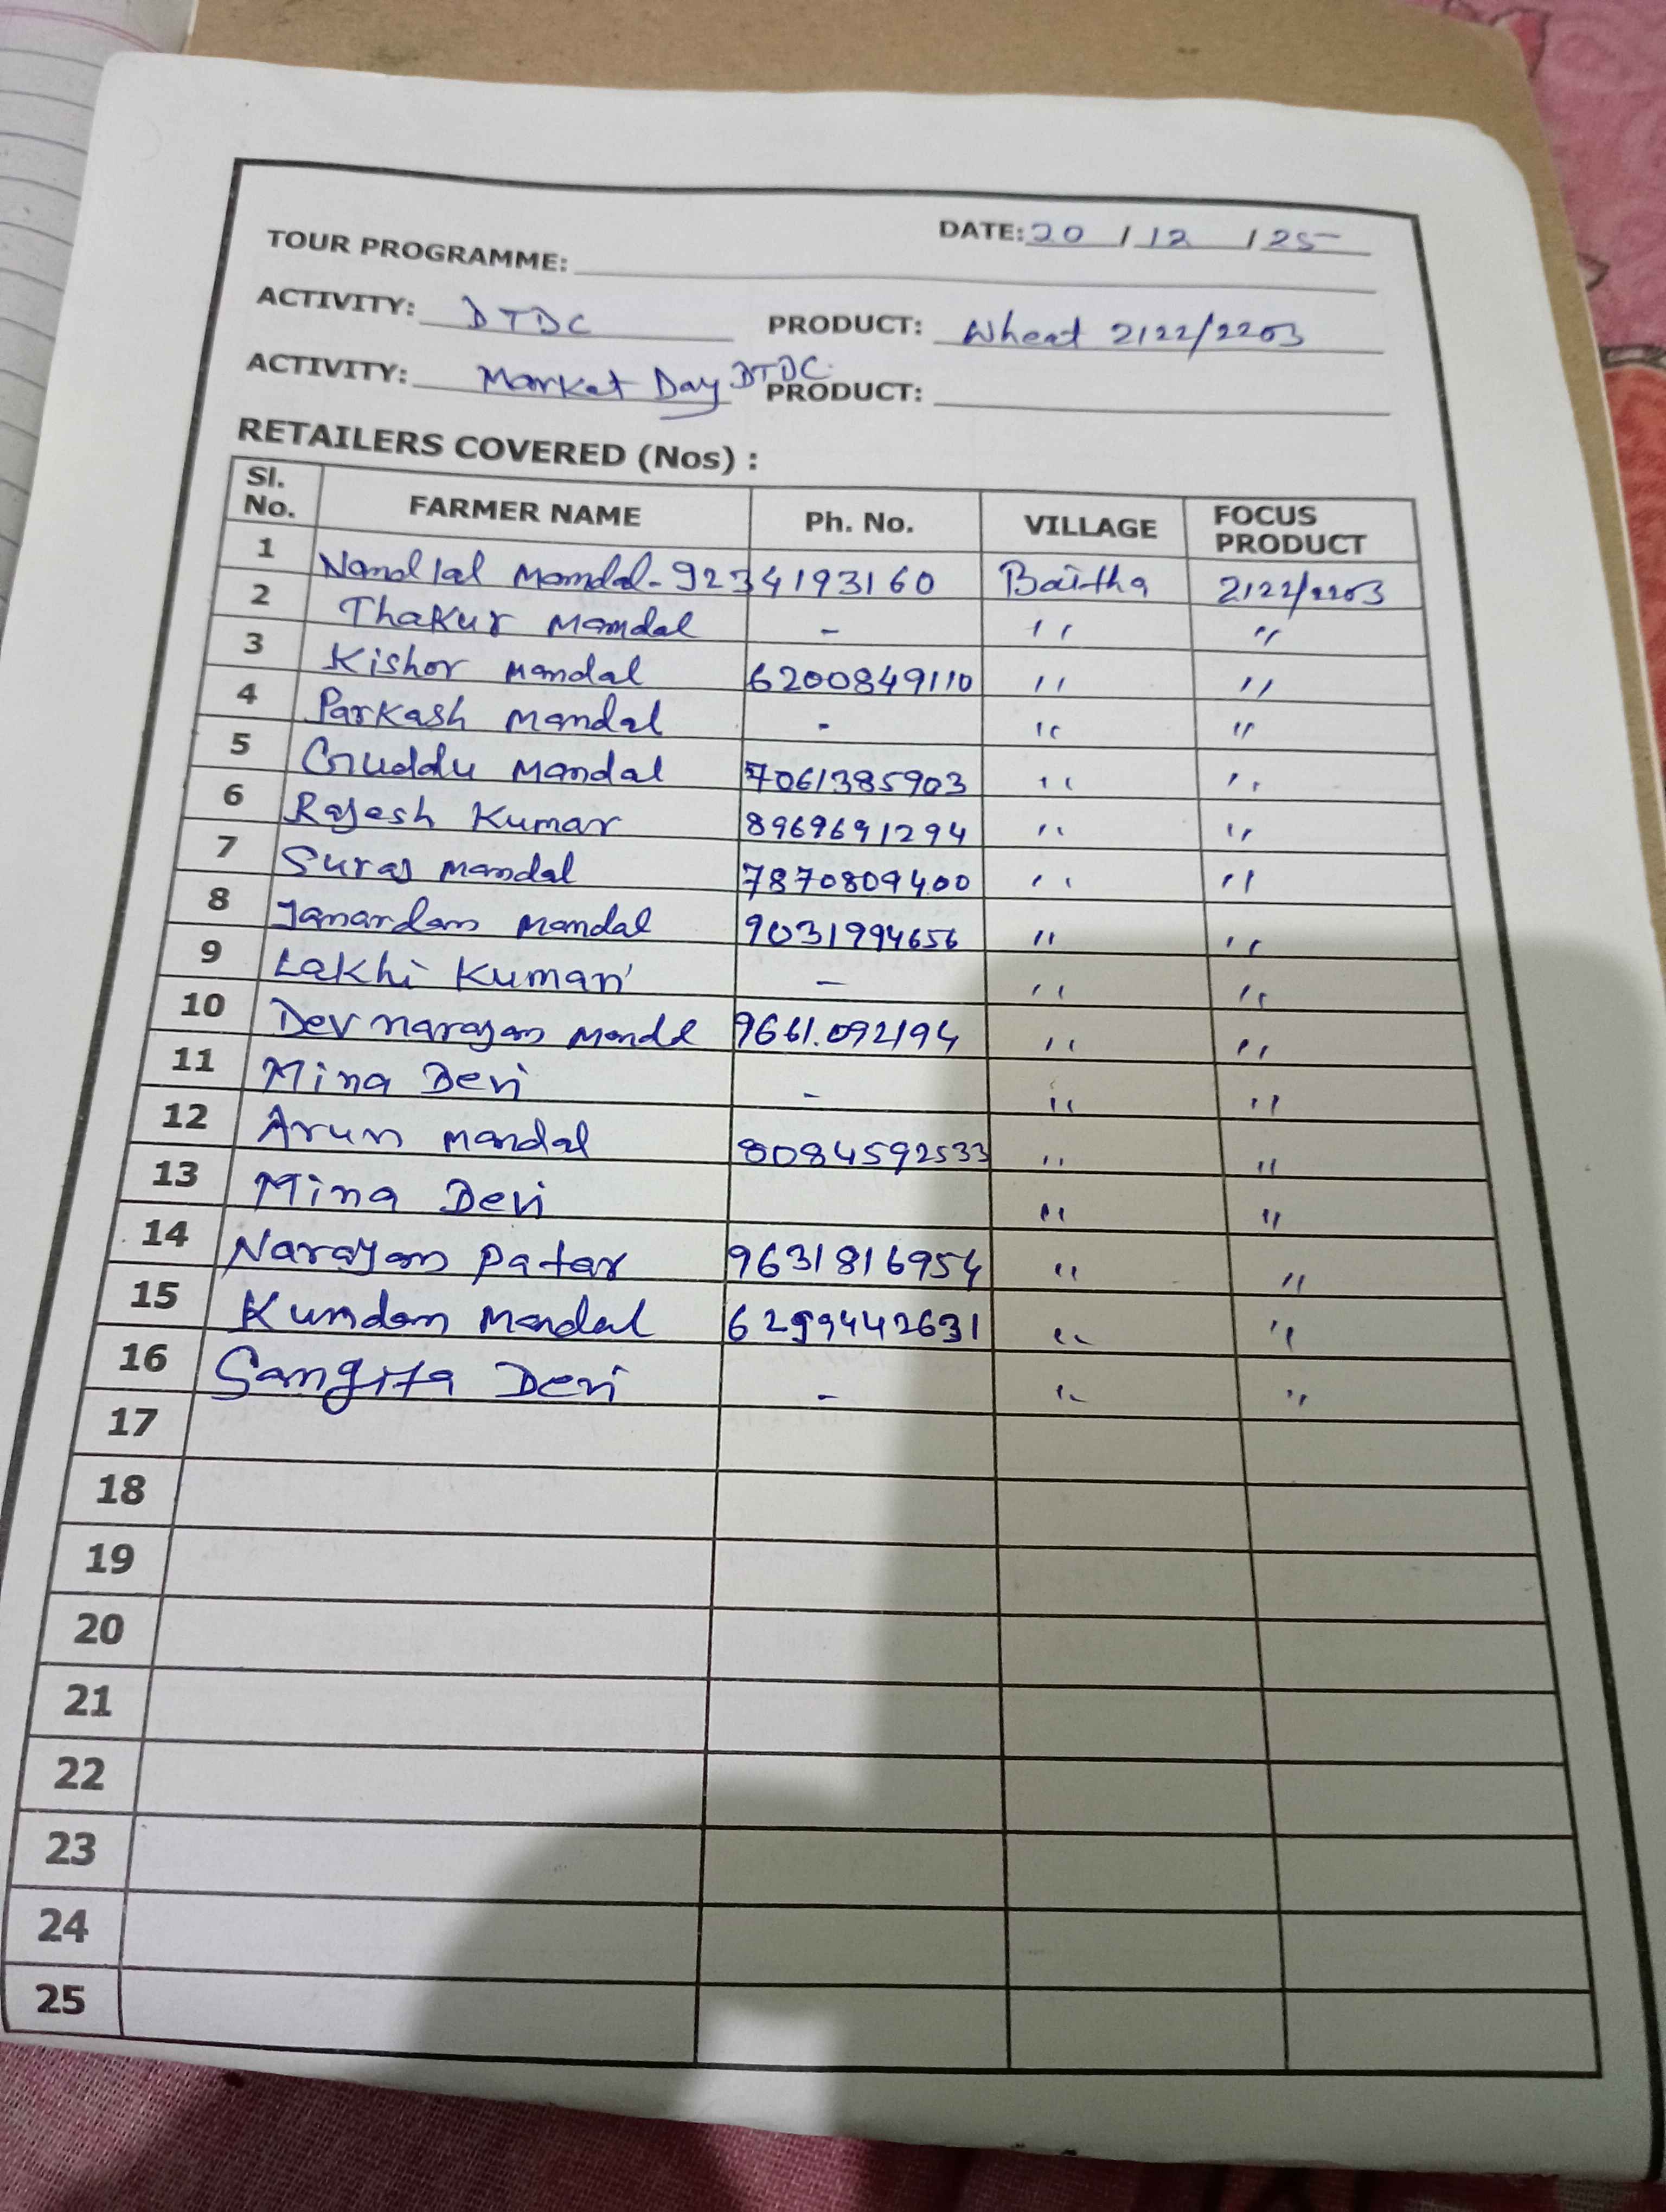 DATE: 20 / 12 / 25
TOUR PROGRAMME:
ACTIVITY: DTDC PRODUCT: Wheat 2122/2203
ACTIVITY: Market Day DTDC. PRODUCT:
RETAILERS COVERED (Nos) :
Sl. No. FARMER NAME Ph. No. VILLAGE FOCUS PRODUCT
1 Nandlal Mandal - 9234193160 Baitha 2122/2203
2 Thakur Mandal - " "
3 Kishor Mandal 6200849110 " "
4 Parkash Mandal - " "
5 Guddu Mandal 7061385903 " "
6 Rajesh Kumar 8969691294 " "
7 Suraj Mandal 7870809400 " "
8 Janardan Mandal 9031994656 " "
9 Lakhi Kumari - " "
10 Dev narayan Mandl 9661.092194 " "
11 Mina Devi - " "
12 Arun Mandal 8084592533 " "
13 Mina Devi " "
14 Narayan Patar 9631816954 " "
15 Kundan Mandal 6299442631 " "
16 Sangita Devi - " "
17
18
19
20
21
22
23
24
25